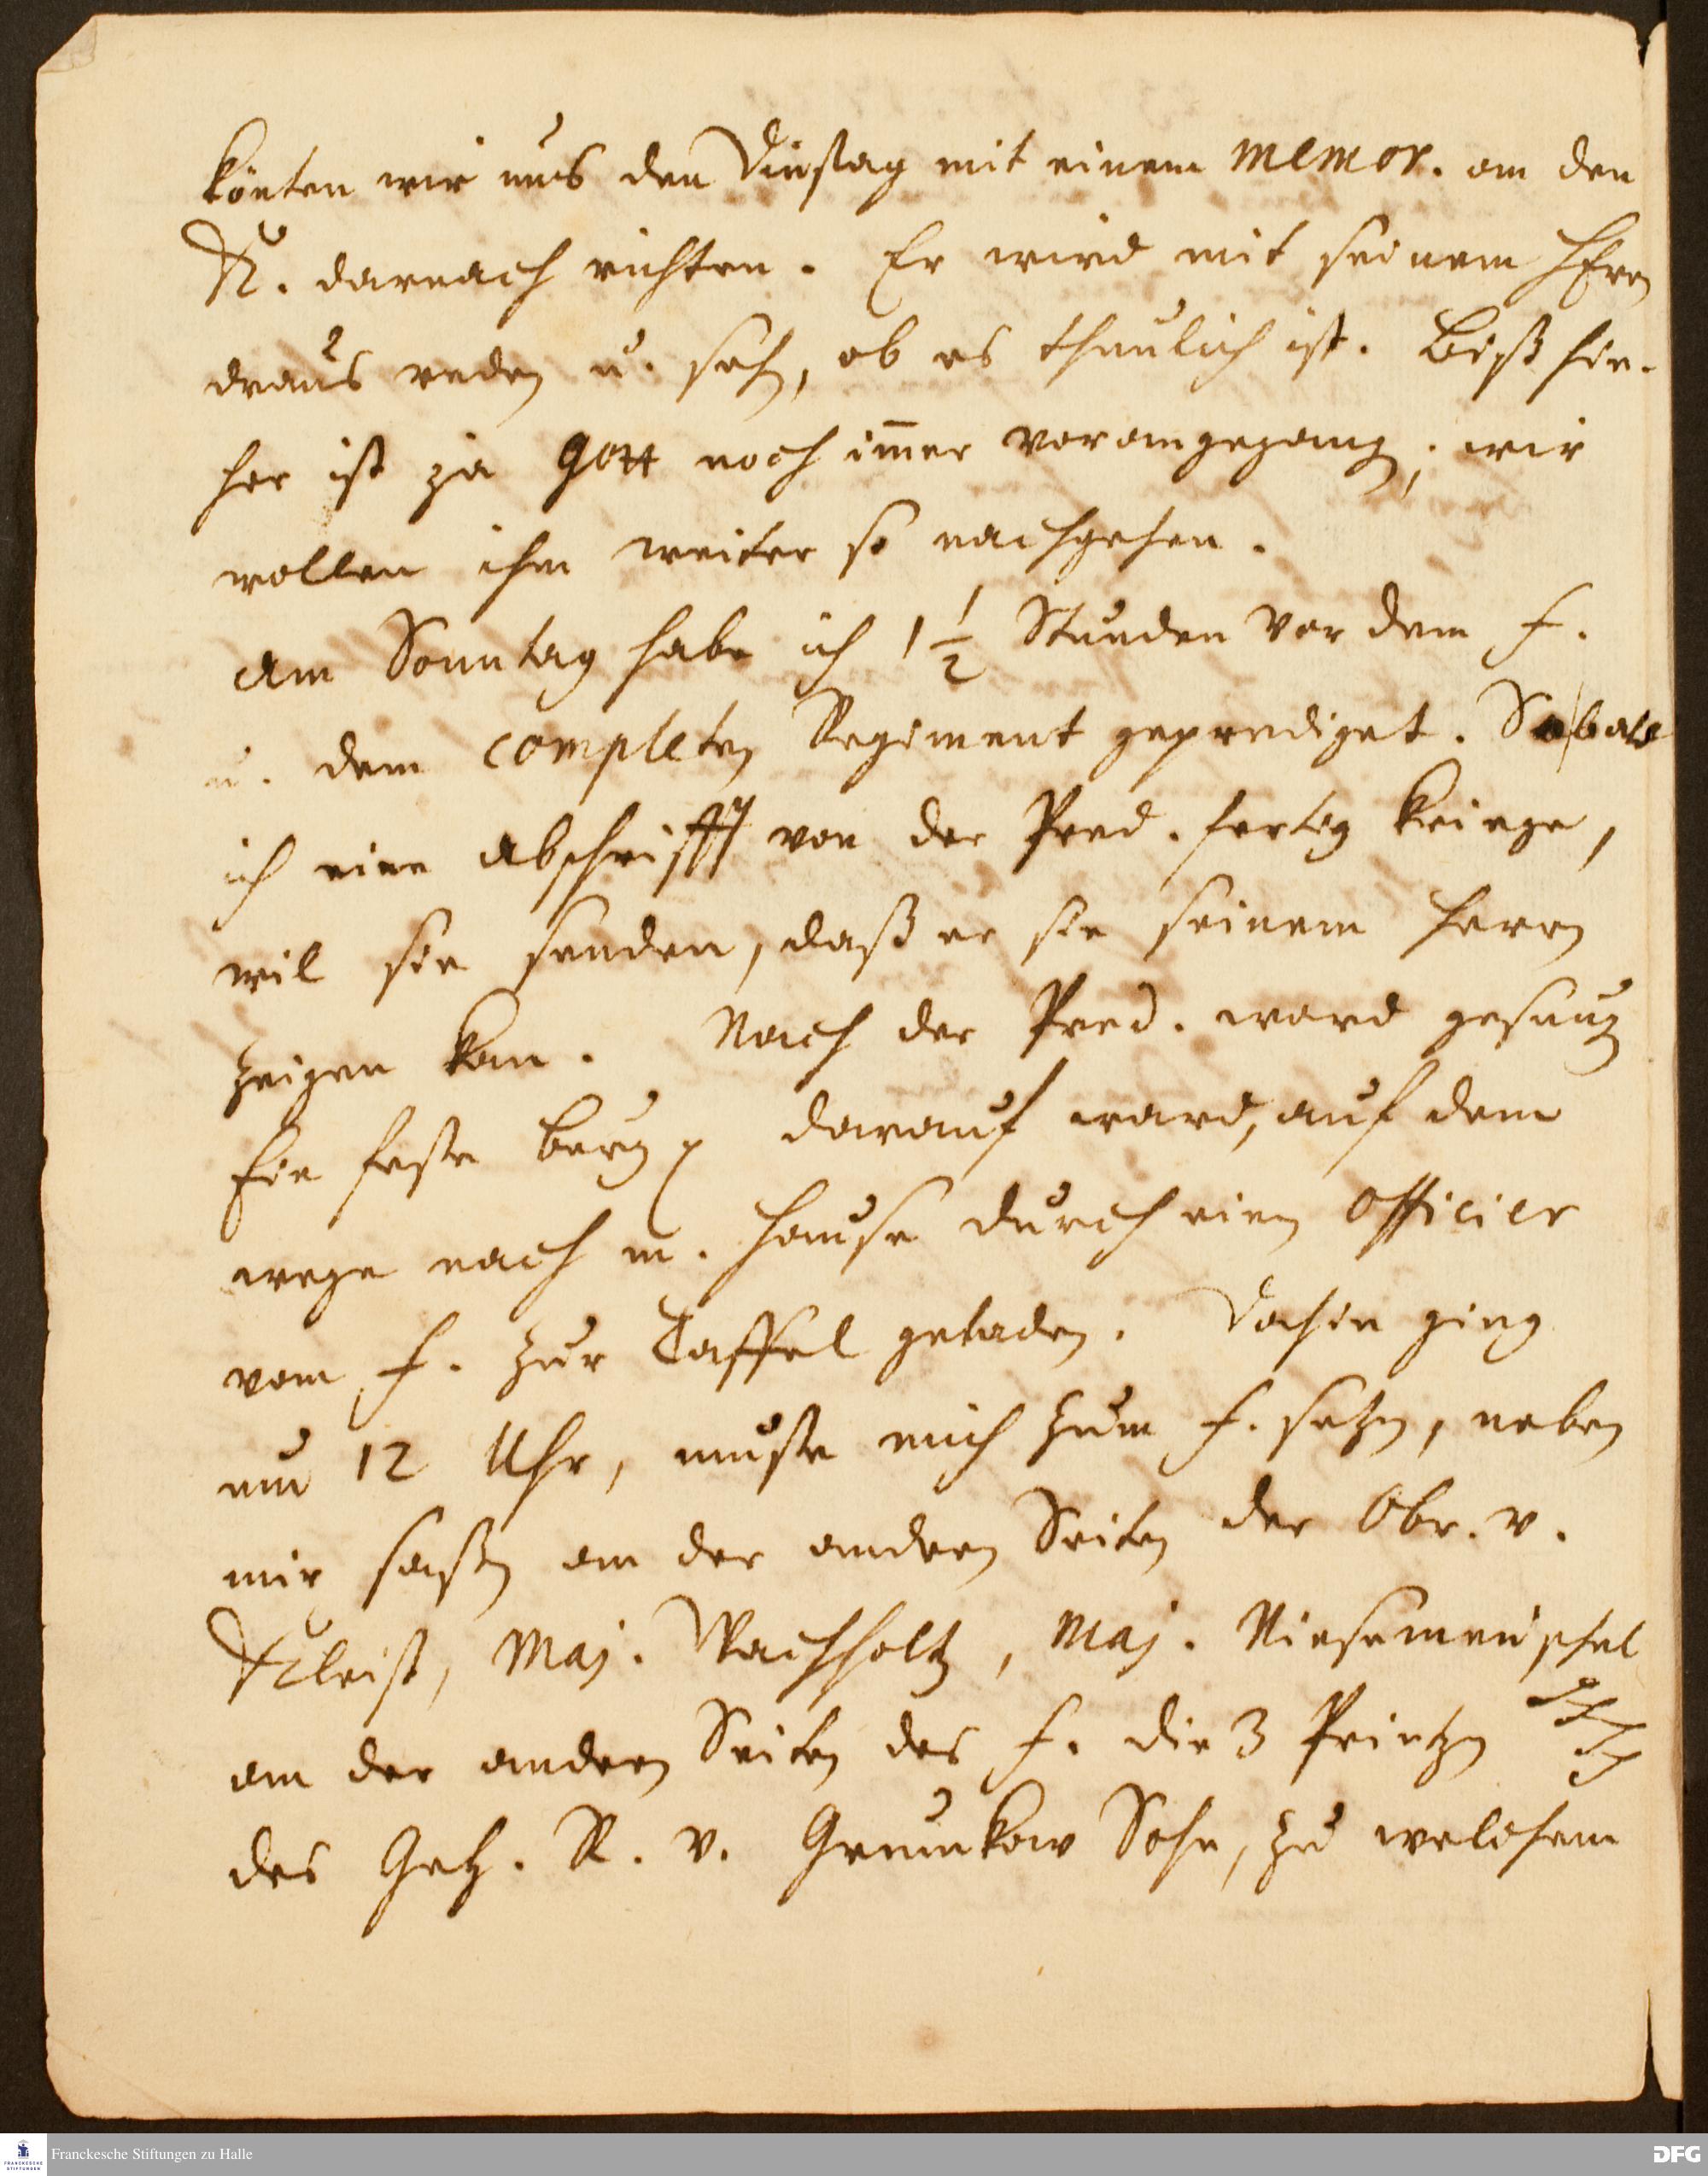 könten wir uns den Dinstag mit einem memor. an den
K. darnach richten. Er wird mit seinem HErrn
draus reden u. sehn, ob es thunlich ist. Biß hie-
her ist ja Gott noch im̄er vorangegangen; wir
wollen ihm weiter so nachgehen.
Am Sonntag habe ich 1 1/2 Stunden vor dem F.
u. dem completen Regiment geprediget. So bald
ich eine Abschrifft von der Pred. fertig kriege,
wil sie senden, daß er sie seinem Herrn
zeigen kan. Nach der Pred. ward gesungen
Eine feste burg darauf ward, auf dem
wege nach m. Hause durch einen Officier
vom F. zur Taffel geladen. Dahin ging
um 12 Uhr, muste mich zum F. setzen, neben
mir saßen an der andern Seiten der Obr. v.
Kleist, Maj. Wachholtz, Maj.
an der andern Seiten des F. die 3 Printzen
des Geh. R. v. Grumkow Sohn, zu welchem
Franckesche Stiftungen zu Halle
DFG